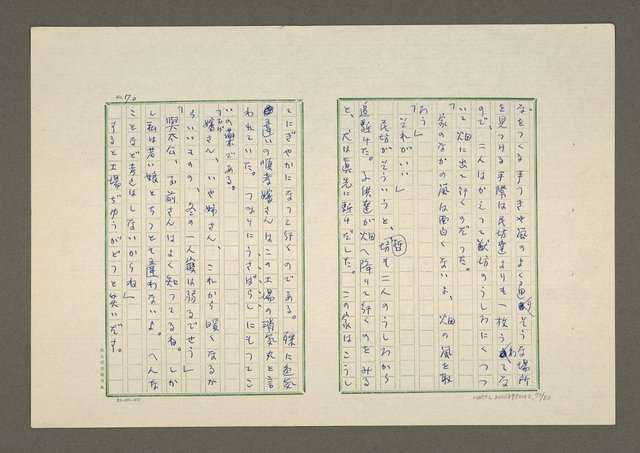 なをつくる手つきや風のよく通りそうな場所
を見つける手際は民坊達よりも一枚うわてな
ので、二人はかえって獣坊のうしろにくっつ
いて畑に出て行くのだった。
「家のなかの風は面白くないよ、畑の風を取
ろう」
「それがいい」
民坊がそういうと、哲坊も二人のうしろから
追駈けた。子供達が畑へ降りて行くのをみる
と、犬は真先に駈けだした。この家はこうし
No. 70
てにぎやかになって行くのである。殊に色気
違いの順孝嫂さんはこの工場の消気丸と言
われていた。つまりにうさばらしにもってこ
いの薬である。
「嫂さん、いや姉さん、これから暖くなるか
らいいものの、冬の一人寝は弱るでせう」
「興太公、お前さんはよく知ってるね。しか
し私は若い娘とちっとも違わないよ。へんな
ことなど考えはしないからね」
すると工場ぢゅうがどっと笑いだす。